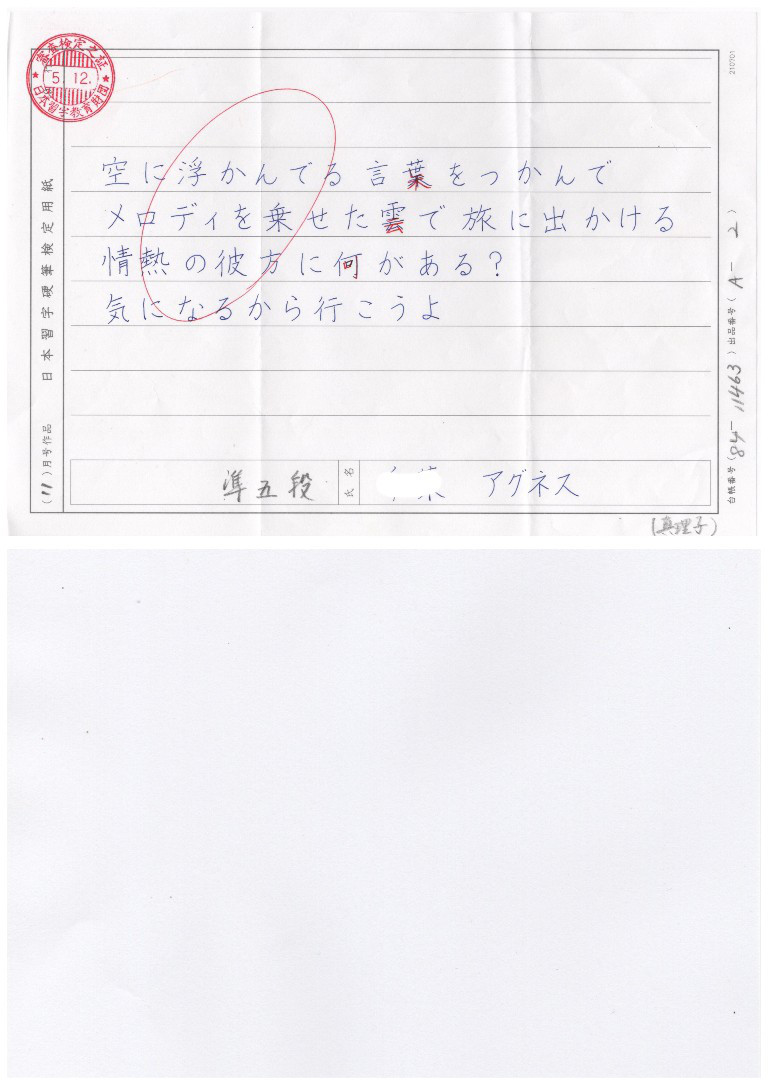 審査検定之証
5. 12.
日本習字教育財団
210901
空に浮かんでる言葉をつかんで
メロディを乗せた雲で旅に出かける
情熱の彼方に何がある?
気になるから行こうよ
日本習字硬筆検定用紙
(11)月号作品
準五段
氏名
アグネス
台帳番号(84-11463)出品番号(A-2)
(真理子)